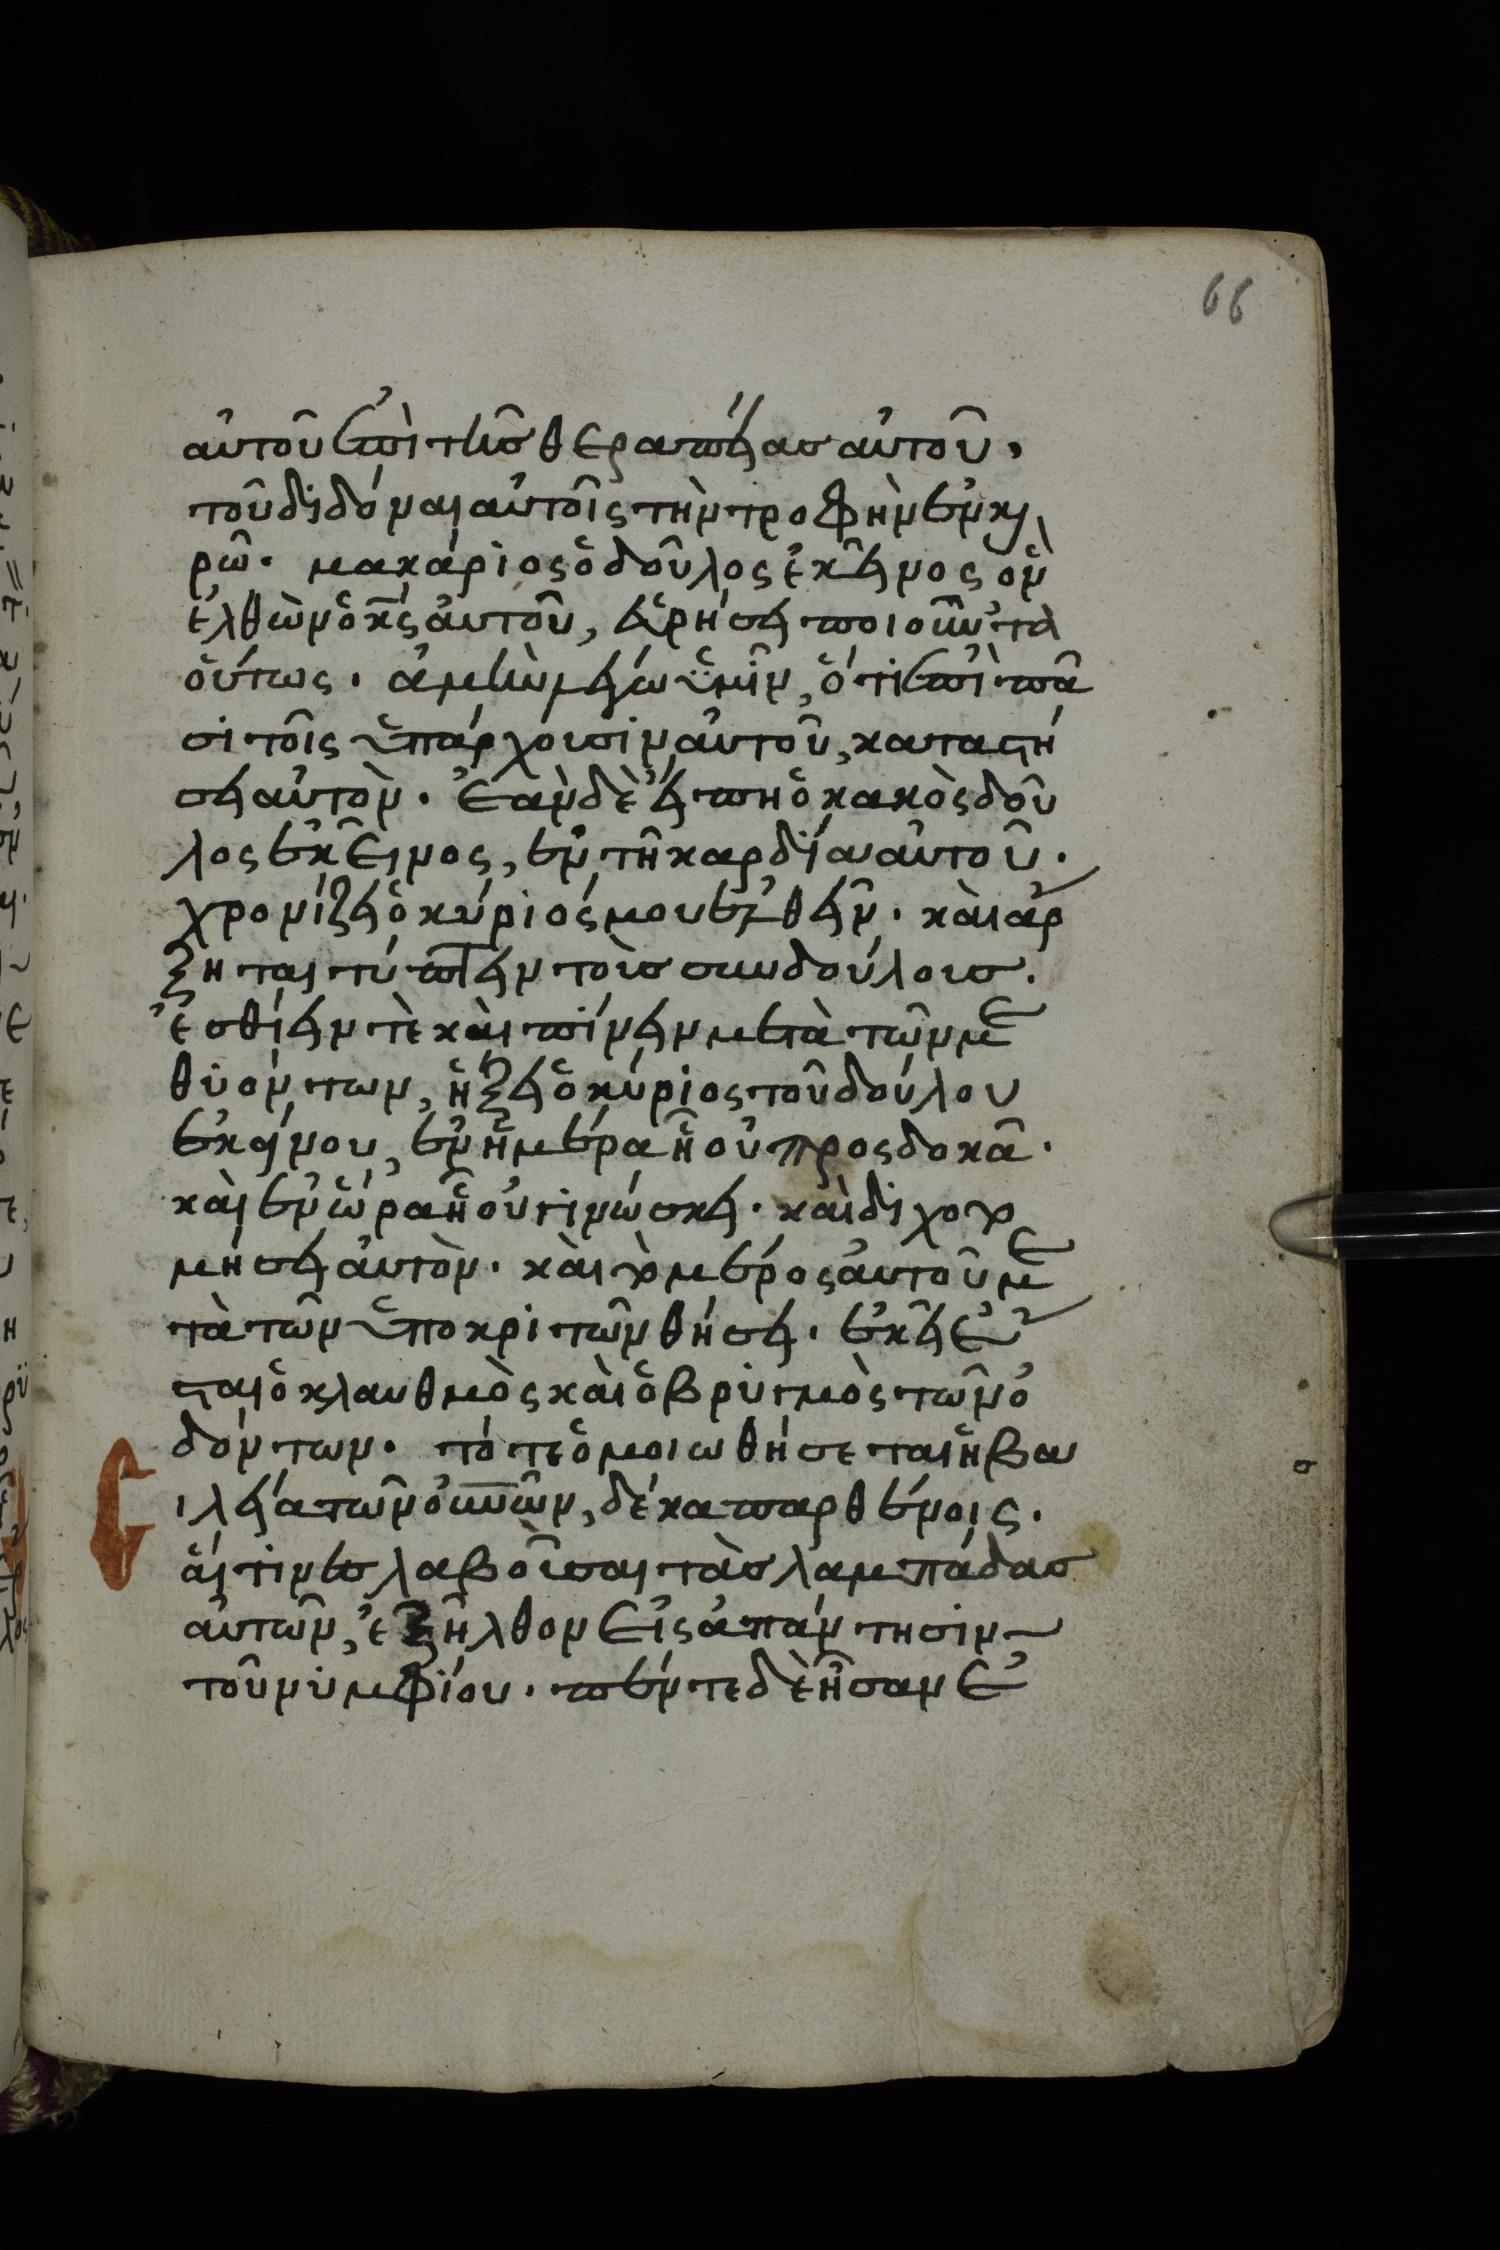 66
αὐτοῦ ἐπὶ τῆς θεραπείας αὐτοῦ,
τοῦ διδόναι αὐτοῖς τὴν τροφὴν ἐν και
ρῶ. μακάριος ὁ δοῦλος ἐκεῖνος ὃν
ἐλθὼν ὁ κς αὐτοῦ, εὑρήσει ποιοῦντα
οὕτως. ἀμὴν λέγω ὑμῖν, ὅτι ἐπὶ πᾶ
σι τοῖς ὑπάρχουσιν αὐτοῦ, καταστή
σει αὐτὸν. Ἐὰν δὲ εἴπη ὁ κακὸς δοῦ
λος ἐκεῖνος, ἐν τῆ καρδία αὐτοῦ.
χρονίζει ὁ κύριός μου ἐλθεῖν. καὶ ἄρ
ξηται τύπτειν τοὺς συνδούλους.
ἐσθίειν τὲ καὶ πίνειν μετὰ τῶν με
θυόντων, ἥξει ὁ κύριος τοῦ δούλου
ἐκείνου, ἐν ἡμέρα ἧ οὐ προσδοκᾶ.
καὶ ἐν ὥρα ἧ οὐ γινώσκει. καὶ διχοτο
μήσει αὐτὸν. καὶ τὸ μέρος αὐτοῦ με
τὰ τῶν ὑποκριτῶν θήσει. ἐκεῖ ἔ
σται ὁ κλαυθμὸς καὶ ὁ βρυγμὸς τῶν ὀ
δόντων. τότε ὁμοιωθήσεται ἡ βα
ιλεία τῶν οὐνῶν, δέκα παρθένοις.
αἵτινες λαβοῦσαι τὰς λαμπάδας
αὐτῶν, ἐξῆλθον εἰς ἀπάντησιν
τοῦ νυμφίου. πέντε δὲ ἦσαν ἐ